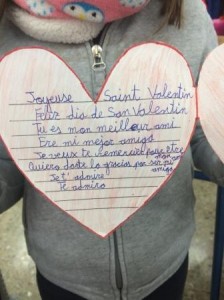 Joyeuse Saint Valentin
Feliz dia de San Valentin
Tu es mon meilleur ami
Ere mi mejor amigo
Je veux te remercier pour être
mon ami
Quiero darte la gracias por ser mi
amigo
Je t'admire
Te admiro